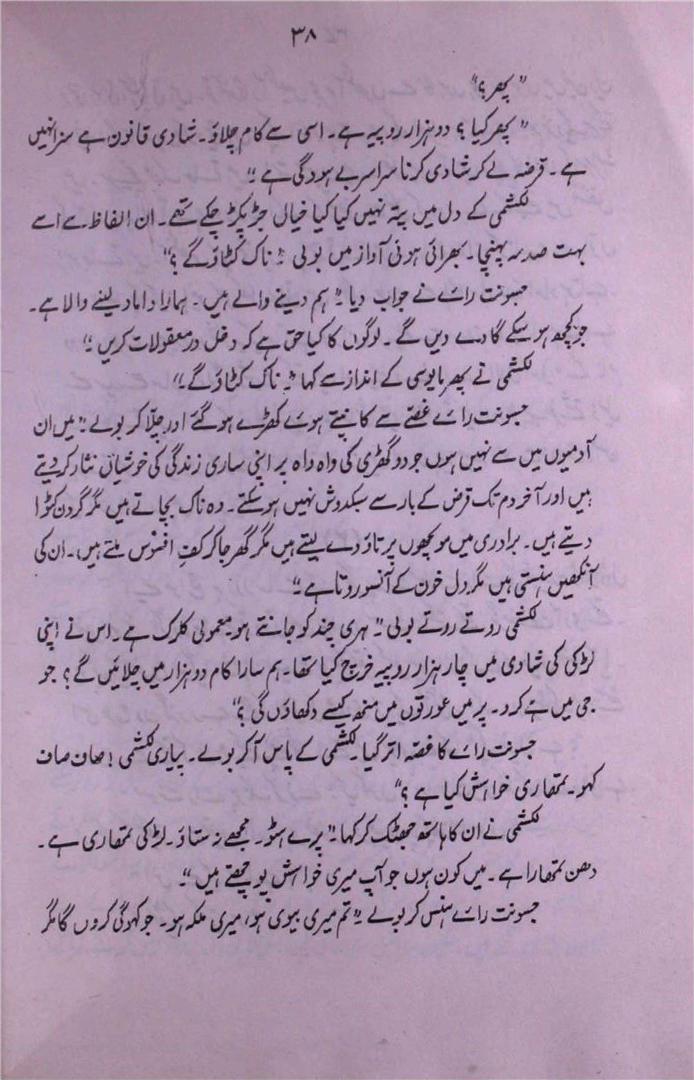 ۳۸
" پھر؟"
" پھر کیا ؟ دو ہزار روپیہ ہے۔ اسی سے کام چلاؤ۔ شادی قانون ہے سزا نہیں
ہے۔ قرضہ لے کر شادی کرنا سراسر بے ہودگی ہے "
لکشمی کے دل میں پتہ نہیں کیا کیا خیال جڑ پکڑ چکے تھے۔ ان الفاظ سے اسے
بہت صدمہ پہنچا۔ بھرائی ہوئی آواز میں بولی " ناک کٹاؤ گے ؟"
جسونت رائے نے جواب دیا " ہم دینے والے ہیں۔ ہمارا داماد لینے والا ہے۔
جو کچھ ہو سکے گا دے دیں گے۔ لوگوں کا کیا حق ہے کہ دخل در معقولات کریں "
لکشمی نے پھر مایوسی کے انداز سے کہا " ناک کٹاؤ گے "
جسونت رائے غصّے سے کانپتے ہوئے کھڑے ہو گئے اور چلّا کر بولے " میں ان
آدمیوں میں سے نہیں ہوں جو دو گھڑی کی واہ واہ پر اپنی ساری زندگی کی خوشیاں نثار کر دیتے
ہیں اور آخر دم تک قرض کے بار سے سبکدوش نہیں ہو سکتے۔ وہ ناک بچاتے ہیں مگر گردن کٹوا
دیتے ہیں۔ برادری میں مونچھوں پر تاؤ دے لیتے ہیں مگر گھر جا کر کفِ افسوس ملتے ہیں۔ ان کی
آنکھیں ہنستی ہیں مگر دل خون کے آنسو روتا ہے "
لکشمی روتے روتے بولی " ہری چند کو جانتے ہو۔ معمولی کلرک ہے۔ اس نے اپنی
لڑکی کی شادی میں چار ہزار روپیہ خرچ کیا تھا۔ ہم سارا کام دو ہزار میں چلائیں گے ؟ جو
جی میں ہے کرو۔ پر میں عورتوں میں منھ کیسے دکھاؤں گی ؟"
جسونت رائے کا غصہ اتر گیا۔ لکشمی کے پاس آ کر بولے۔ پیاری لکشمی ! صاف صاف
کہو۔ تمھاری خواہش کیا ہے ؟"
لکشمی نے ان کا ہاتھ جھٹک کر کہا " پرے ہٹو۔ مجھے نہ ستاؤ۔ لڑکی تمھاری ہے۔
دھن تمھارا ہے۔ میں کون ہوں جو آپ میری خواہش پوچھتے ہیں "
جسونت رائے ہنس کر بولے " تم میری بیوی ہو، میری ملکہ ہو۔ جو کہو گی کروں گا مگر